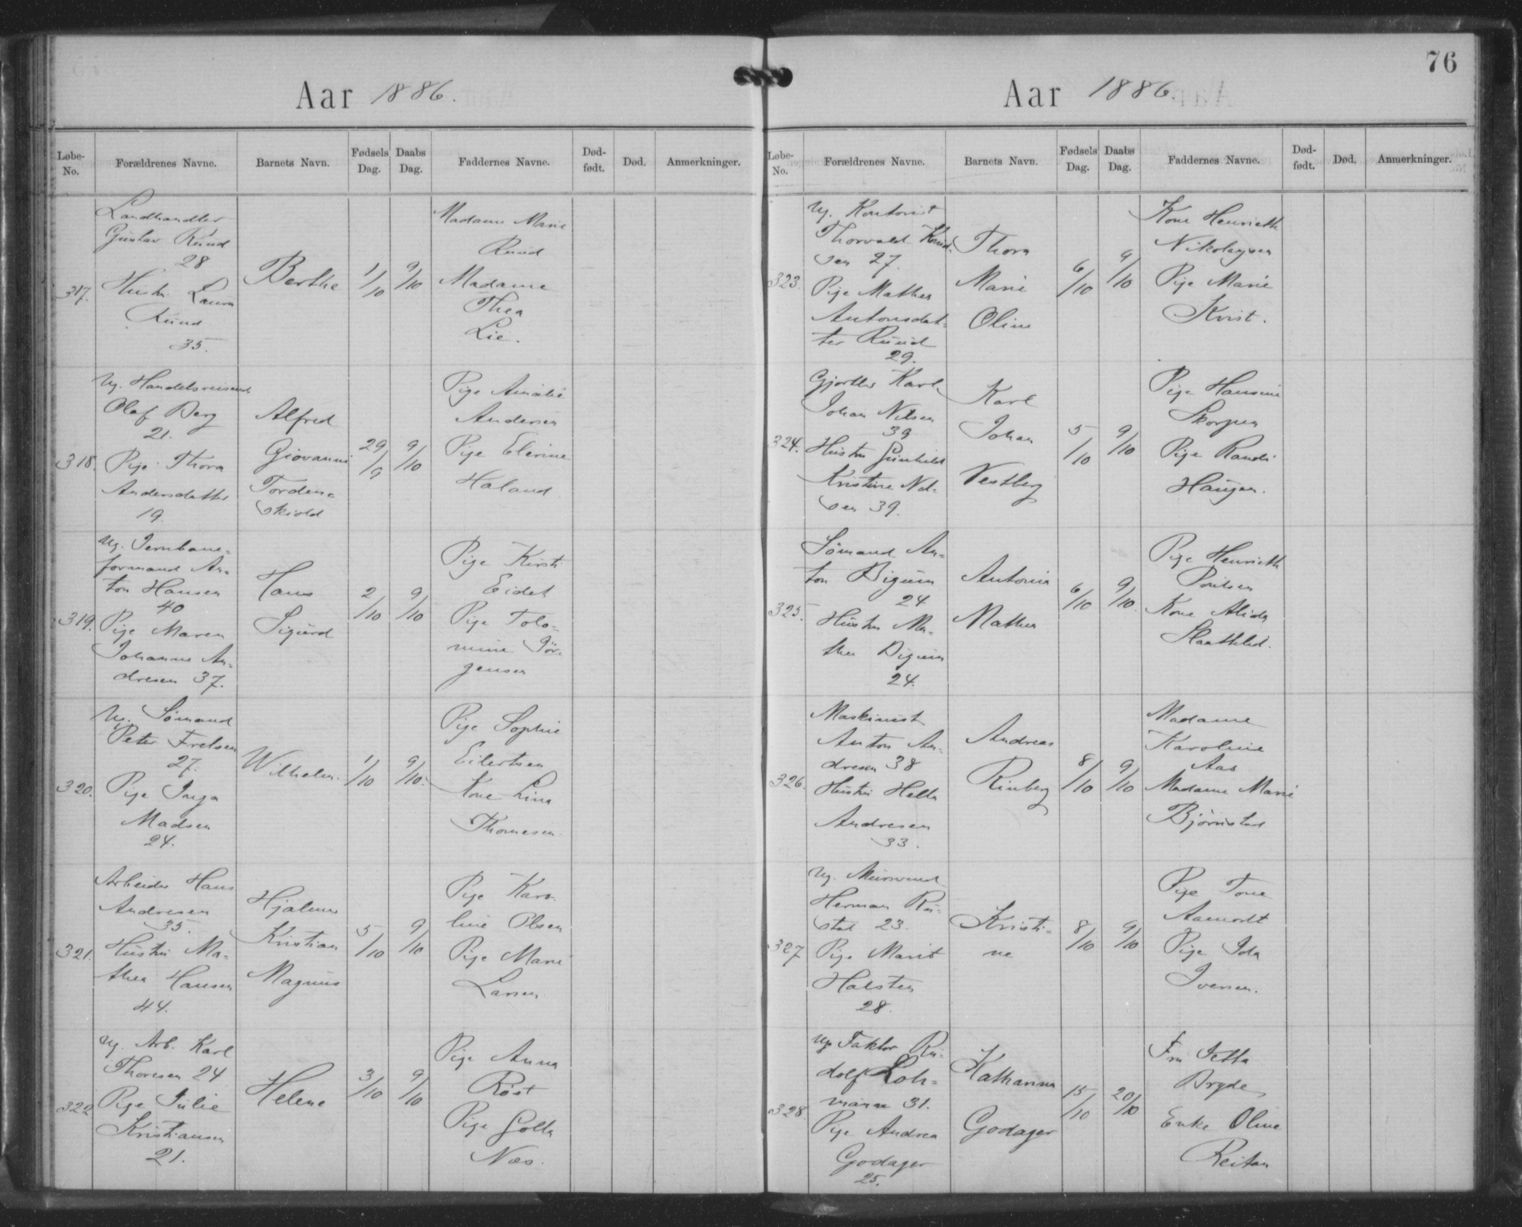 76
Aar 1886.
Løbe-No.
Forældrenes Navne.
Barnets Navn.
Fødsels Dag.
Daabs Dag.
Faddernes Navne.
Død-født.
Død.
Anmerkninger.
317.
Landhandler
Gustav Ruud
28
Hustru Laura
Ruud
35.
Berthe
1/10
9/10
Madame Marie
Ruud
Madame
Thea
Lie.
318.
Ug. Handelsreisend
Olaf Berg
21.
Pige Thora
Andersdatter
19
Alfred
Giovanni
Torden-
skiold
29/9
9/10
Pige Amalie
Andersen
Pige Elerine
Haland
319.
Ug. Jernbane-
formand An-
ton Hansen
40
Pige Maren
Johanne An-
dresen 37.
Hans
Sigurd
2/10
9/10
Pige Kirsti
Eidet
Pige Tolo-
mine Jør-
gensen
320.
Ug. Sømand
Peter
27.
Pige Inga
Madsen
24.
Wilhelm.
1/10
9/10.
Pige Sophie
Eilertsen
Kone Lina
Thomesen
321.
Arbeider Hans
Andresen
35.
Hustru Ma-
thea Hansen
44.
Hjalmar
Kristian
Magnus
5/10
9/10
Pige Karo-
line Olsen
Pige Marie
Larsen
322
Ug. Arb. Karl
Thoresen 24
Pige Julie
Kristiansen
21.
Helene
3/10
9/10
Pige Anna
Røst
Pige
Næs.
Aar 1886.
Løbe-No.
Forældrenes Navne.
Barnets Navn.
Fødsels Dag.
Daabs Dag.
Faddernes Navne.
Død-født.
Død.
Anmerkninger.
323.
Ug. Kontorist
Thorvald Knud-
sen 27.
Pige Mathea
Antonsdat-
ter Ruud
29.
Thora
Marie
Oline
6/10
9/10
Kone Henriette
Nikolaysen
Pige Marie
Kvist.
324.
Gjørtler Karl
Johan Nilsen
39
Hustru Gunhild
Kristine Nil-
sen 39.
Karl
Johan
Vestberg
5/10
9/10
Pige Hansine
Skorpen
Pige Randi
Haugen.
325.
Sømand An-
ton Bigum
24
Hustru Ma-
thea Bigum
24.
Antonia
Mathea
6/10
9/10.
Pige Henriette
Poulsen
Kone Alida
326.
Maskinist
Anton An-
dresen 38
Hustru Helta
Andresen
33.
Andreas
Rinberg
8/10
9/10
Madame
Karoline
Aas
Madame Marie
Bjørnstad
327
Ug. Murersvend
Herman Ru-
stad 23.
Pige Marit
Halsten
28.
Kristi-
ne
8/10
9/10
Pige Tone
Aamodt
Pige Ida
Iversen.
328
Ug Faktor Ru-
dolf Loh-
mann 31.
Pige Andrea
Godager
25.
Katharina
Godager
15/10
20/10
Fru Jetta
Bryde
Enke Oline
Reitan